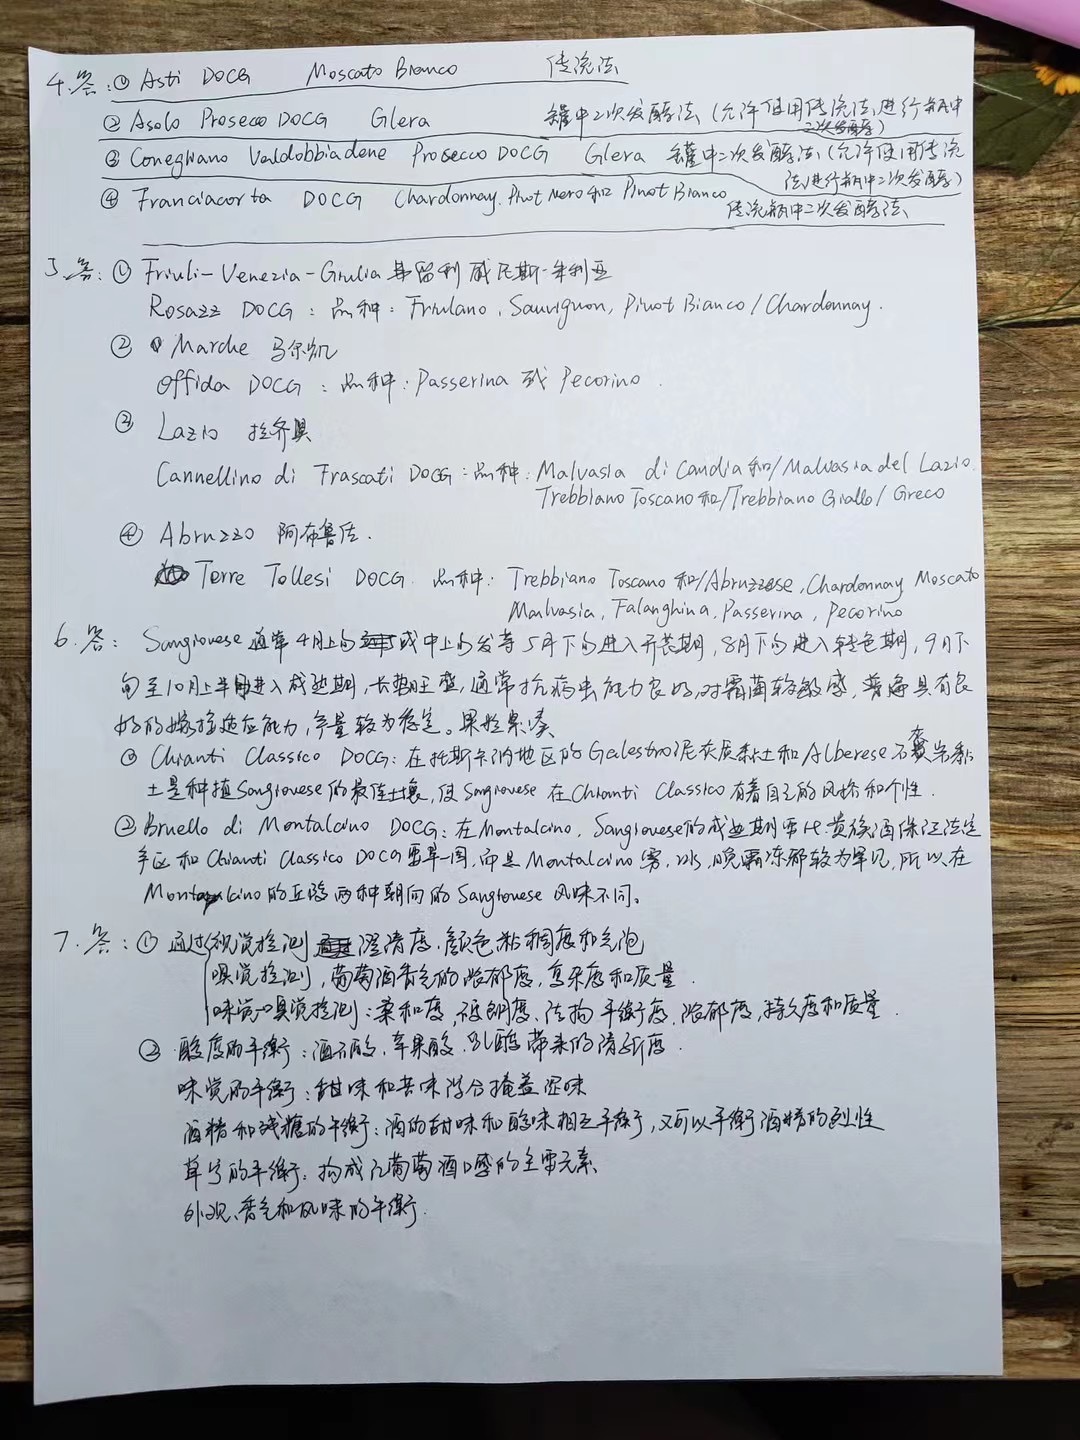 4.答:① Asti DOCG Moscato Bianco 传统法
② Asolo Proseco DOCG Glera 罐中二次发酵法(允许使用传统法进行瓶中
二次发酵)
③ Conegliano Valdobbiadene Prosecco DOCG Glera 罐中二次发酵法(允许使用传统
法进行瓶中二次发酵)
④ Franciacorta DOCG Chardonnay. Pinot Nero和 Pinot Bianco
传统瓶中二次发酵法
5.答:① Friuli-Venezia-Giulia 弗留利威尼斯-朱利亚
Rosazz DOCG:品种:Friulano, Sauvignon, Pinot Bianco/Chardonnay.
② Marche 马尔凯
Offida DOCG:品种:Passerina 或 Pecorino.
③ Lazio 拉齐奥
Cannellino di Frascati DOCG:品种:Malvasia di Candia和/Malvasia del Lazio.
Trebbiano Toscano和/Trebbiano Giallo/Greco
④ Abruzzo 阿布鲁佐.
Terre Tollesi DOCG. 品种:Trebbiano Toscano和/Abruzzese, Chardonnay Moscato
Malvasia, Falanghina, Passerina, Pecorino
6.答:Sangiovese通常4月上旬或中上旬发芽5月下旬进入开花期,8月下旬进入转色期,9月下
旬至10月上半月进入成熟期,长势旺盛,通常抗病虫能力良好,对霜菌较敏感,普遍具有良
好的嫁接适应能力,产量较为稳定。果粒紧凑
① Chianti Classico DOCG:在托斯卡纳地区的Galestro泥灰质黏土和Alberese石灰岩黏
土是种植Sangiovese的最佳土壤,使Sangiovese在Chianti Classico有着自己的风格和个性.
② Bruello di Montalcino DOCG:在Montalcino, Sangiovese的成熟期要比贵族酒保证法定
产区和Chianti Classico DOCG要早一周,而且Montalcino雾,冰,晚霜冻都较为罕见,所以在
Montalcino的丘陵两种朝向的Sangiovese风味不同。
7.答:① 通过视觉检测 澄清度.颜色粘稠度和气泡
嗅觉检测,葡萄酒香气的浓郁度,复杂度和质量.
味觉口嗅觉检测:柔和度,强韧度.结构 平衡度.浓郁度,持久度和质量.
② 酸度的平衡:酒石酸.苹果酸.乳酸带来的清新度.
味觉的平衡:甜味和苦味部分掩盖涩味
酒精和残糖的平衡:酒的甜味和酸味相互平衡,又可以平衡酒精的烈性
单宁的平衡:构成了葡萄酒口感的主要元素
外观、香气和风味的平衡.